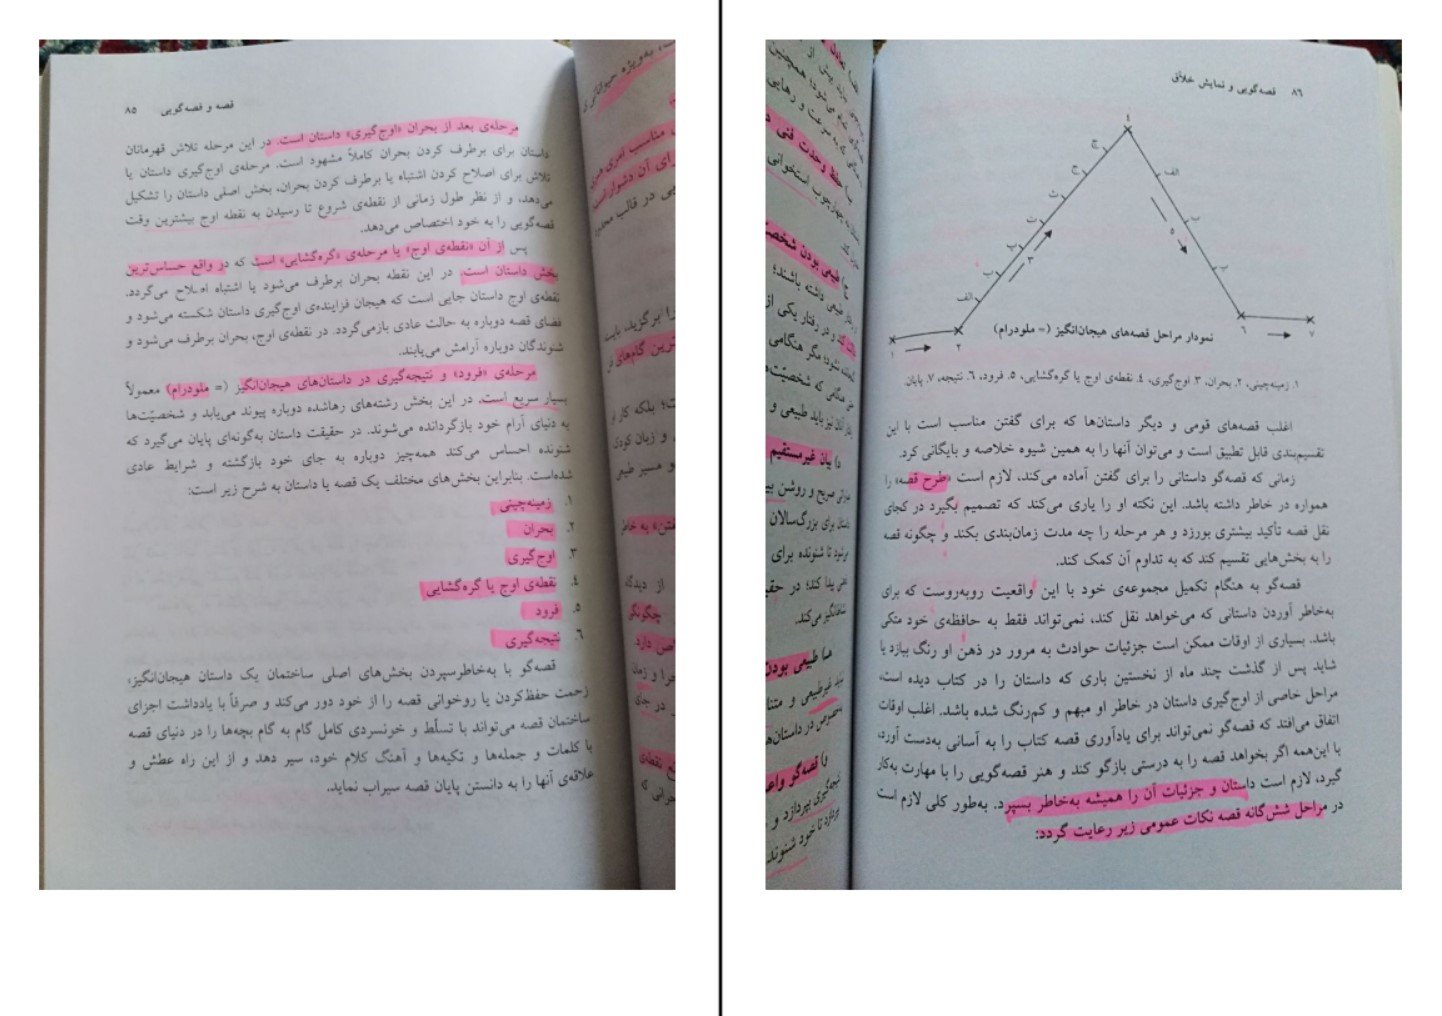 قصه و قصه‌گویی ۸۵
مرحله‌ی بعد از بحران «اوج‌گیری» داستان است. در این مرحله تلاش قهرمانان
داستان برای برطرف کردن بحران کاملاً مشهود است. مرحله‌ی اوج‌گیری داستان یا
تلاش برای اصلاح کردن اشتباه یا برطرف کردن بحران، بخش اصلی داستان را تشکیل
می‌دهد، و از نظر طول زمانی از نقطه‌ی شروع تا رسیدن به نقطه اوج بیشترین وقت
قصه‌گویی را به خود اختصاص می‌دهد.
پس از آن «نقطه‌ی اوج» یا مرحله‌ی «گره‌گشایی» است که در واقع حساس‌ترین
بخش داستان است. در این نقطه بحران برطرف می‌شود یا اشتباه اصلاح می‌گردد.
نقطه‌ی اوج داستان جایی است که هیجان فزاینده‌ی اوج‌گیری داستان شکسته می‌شود و
فضای قصه دوباره به حالت عادی بازمی‌گردد. در نقطه‌ی اوج، بحران برطرف می‌شود و
شنوندگان دوباره آرامش می‌یابند.
مرحله‌ی «فرود» و نتیجه‌گیری در داستان‌های هیجان‌انگیز (= ملودرام) معمولاً
بسیار سریع است. در این بخش رشته‌های رهاشده دوباره پیوند می‌یابد و شخصیّت‌ها
به دنیای آرام خود بازگردانده می‌شوند. در حقیقت داستان به‌گونه‌ای پایان می‌گیرد که
شنونده احساس می‌کند همه‌چیز دوباره به جای خود بازگشته و شرایط عادی
شده‌است. بنابراین بخش‌های مختلف یک قصه یا داستان به شرح زیر است:
۱. زمینه‌چینی
۲. بحران
۳. اوج‌گیری
۴. نقطه‌ی اوج یا گره‌گشایی
۵. فرود
۶. نتیجه‌گیری
قصه‌گو با به‌خاطرسپردن بخش‌های اصلی ساختمان یک داستان هیجان‌انگیز،
زحمت حفظ‌کردن یا روخوانی قصه را از خود دور می‌کند و صرفاً با یادداشت اجزای
ساختمان قصه می‌تواند با تسلّط و خونسردی کامل گام به گام بچه‌ها را در دنیای قصه
با کلمات و جمله‌ها و تکیه‌ها و آهنگ کلام خود، سیر دهد و از این راه عطش و
علاقه‌ی آنها را به دانستن پایان قصه سیراب نماید.
۸۶ قصه‌گویی و نمایش خلاّق
۴
چ
ج
ث
ت
پ
ب
الف
۳
الف
ب
۵
پ
۱
۲
۶
۷
نمودار مراحل قصه‌های هیجان‌انگیز (= ملودرام)
۱. زمینه‌چینی، ۲. بحران، ۳. اوج‌گیری، ۴. نقطه‌ی اوج یا گره‌گشایی، ۵. فرود، ۶. نتیجه، ۷. پایان.
اغلب قصه‌های قومی و دیگر داستان‌ها که برای گفتن مناسب است با این
تقسیم‌بندی قابل تطبیق است و می‌توان آنها را به همین شیوه خلاصه و بایگانی کرد.
زمانی که قصه‌گو داستانی را برای گفتن آماده می‌کند، لازم است «طرح قصه» را
همواره در خاطر داشته باشد. این نکته او را یاری می‌کند که تصمیم بگیرد در کجای
نقل قصه تأکید بیشتری بورزد و هر مرحله را چه مدت زمان‌بندی بکند و چگونه قصه
را به بخش‌هایی تقسیم کند که به تداوم آن کمک کند.
قصه‌گو به هنگام تکمیل مجموعه‌ی خود با این واقعیت روبه‌روست که برای
به‌خاطر آوردن داستانی که می‌خواهد نقل کند، نمی‌تواند فقط به حافظه‌ی خود متکی
باشد. بسیاری از اوقات ممکن است جزئیات حوادث به مرور در ذهن او رنگ ببازد یا
شاید پس از گذشت چند ماه از نخستین باری که داستان را در کتاب دیده است،
مراحل خاصی از اوج‌گیری داستان در خاطر او مبهم و کم‌رنگ شده باشد. اغلب اوقات
اتفاق می‌افتد که قصه‌گو نمی‌تواند برای یادآوری قصه کتاب را به آسانی به‌دست آورد،
با این‌همه اگر بخواهد قصه را به درستی بازگو کند و هنر قصه‌گویی را با مهارت به‌کار
گیرد، لازم است داستان و جزئیات آن را همیشه به‌خاطر بسپرد. به‌طور کلی لازم است
در مراحل شش‌گانه قصه نکات عمومی زیر رعایت گردد: